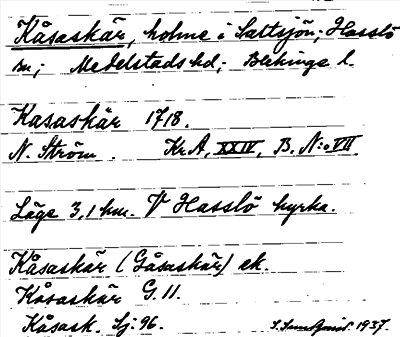 Kåsaskär, holme i Saltsjön; Hasslö
sn; Medelstads hd; Blekinge l.
Kasaskär 1718.
N. Ström. Kr.A, XXIV, B. N:o VII
Läge 3,1 km. V Hasslö kyrka.
Kåsaskär (Gåsaskär) ek.
Kåsaskär G. 11.
Kåsask. Sj: 96. 1937